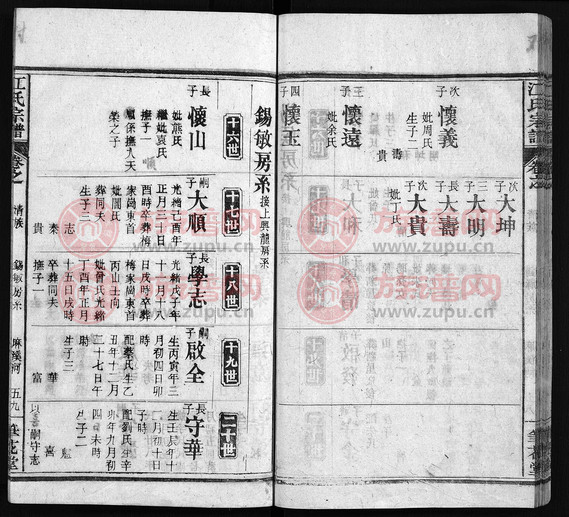 江氏宗譜
次子
懷義
妣周氏
生子二
濤
貴
三子
懷遠
妣余氏
四子
懷玉
次子
大坤
三子
大明
長子
大壽
次子
大貴
妣丁氏
錫敏房系接上興龍房系
十六世
十七世
十八世
十九世
二十世
長子
懷山
妣熊氏
繼妣袁氏
撫子一
順係撫入天
榮之子
嗣子
大順
光緒己酉年
正月三十日
酉時卒葬梅
家崗東首
妣閻氏
葬同夫
生子二
志
秦
貴
長子
學志
光緒戊子年
十一月十八
日戌時卒葬
梅家崗東首
丙山壬向
妣曾氏光緒
丁酉年正月
十五日戌時
卒葬同夫
撫子一
嗣子
啟全
生丙寅年三
月初四日卯
時
配蔡氏生乙
丑年十二月
二十七日午
時
生子三
華
富
長子
守華
生壬辰年十
二月初十日
子時
配劉氏生辛
卯年九月初
四日未時
生子二
喜
以喜嗣守志
江氏宗譜
卷之
清義
錫敏房系
麻溪河
五九
筆花堂